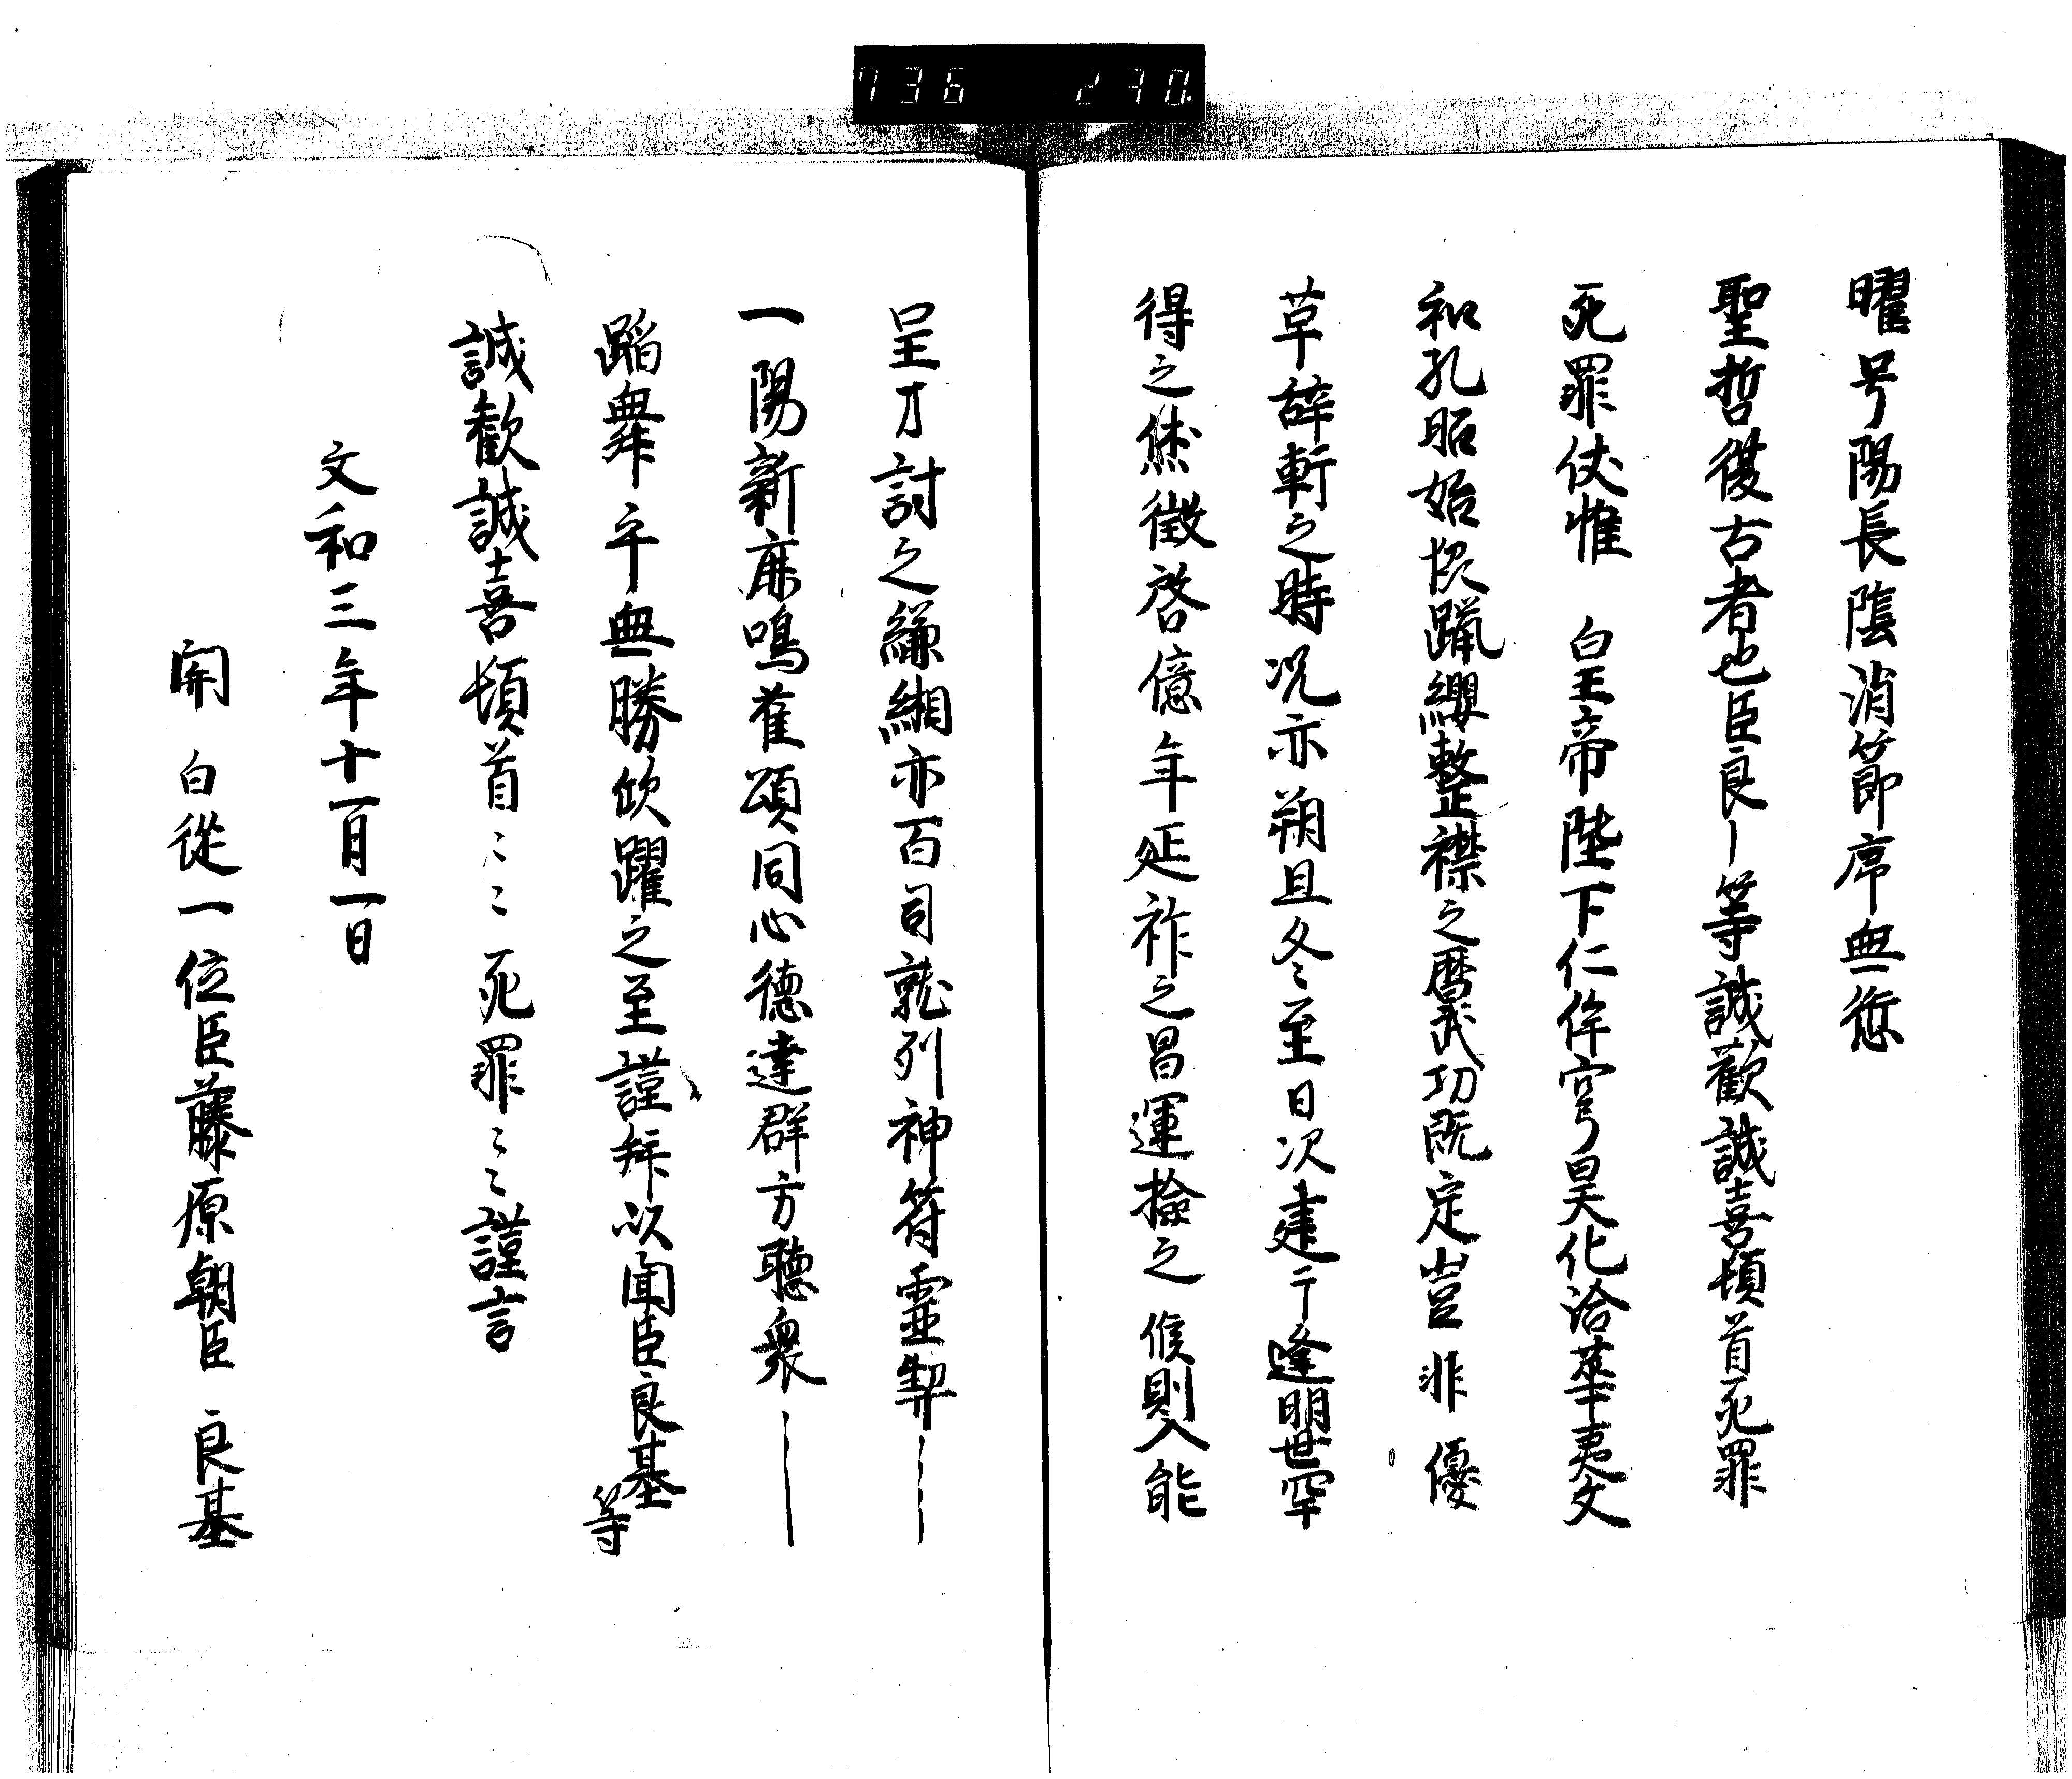 736 270.
曜号陽長陰消節序無愆
聖哲復古者也臣良〡等誠歓誠喜頓首死罪
死罪伏惟 皇帝陛下仁侔穹昊化洽華夷文
和孔昭始恢躐纓整襟之暦武功既定豈非優
草辞斬之時况亦朔旦冬至日次建于逢明世罕
得之休徴啓億年延祚之昌運撿之候則入能
呈才討之縑緗亦百司就列神符霊契〡〡
一陽新鹿鳴雀頌同心徳達群方聴衆〡〡
蹈舞于無勝欣躍之至謹拜以聞臣良基等
誠歓誠喜頓首〻〻死罪〻〻謹言
文和三年十一月一日
関白従一位臣藤原朝臣良基